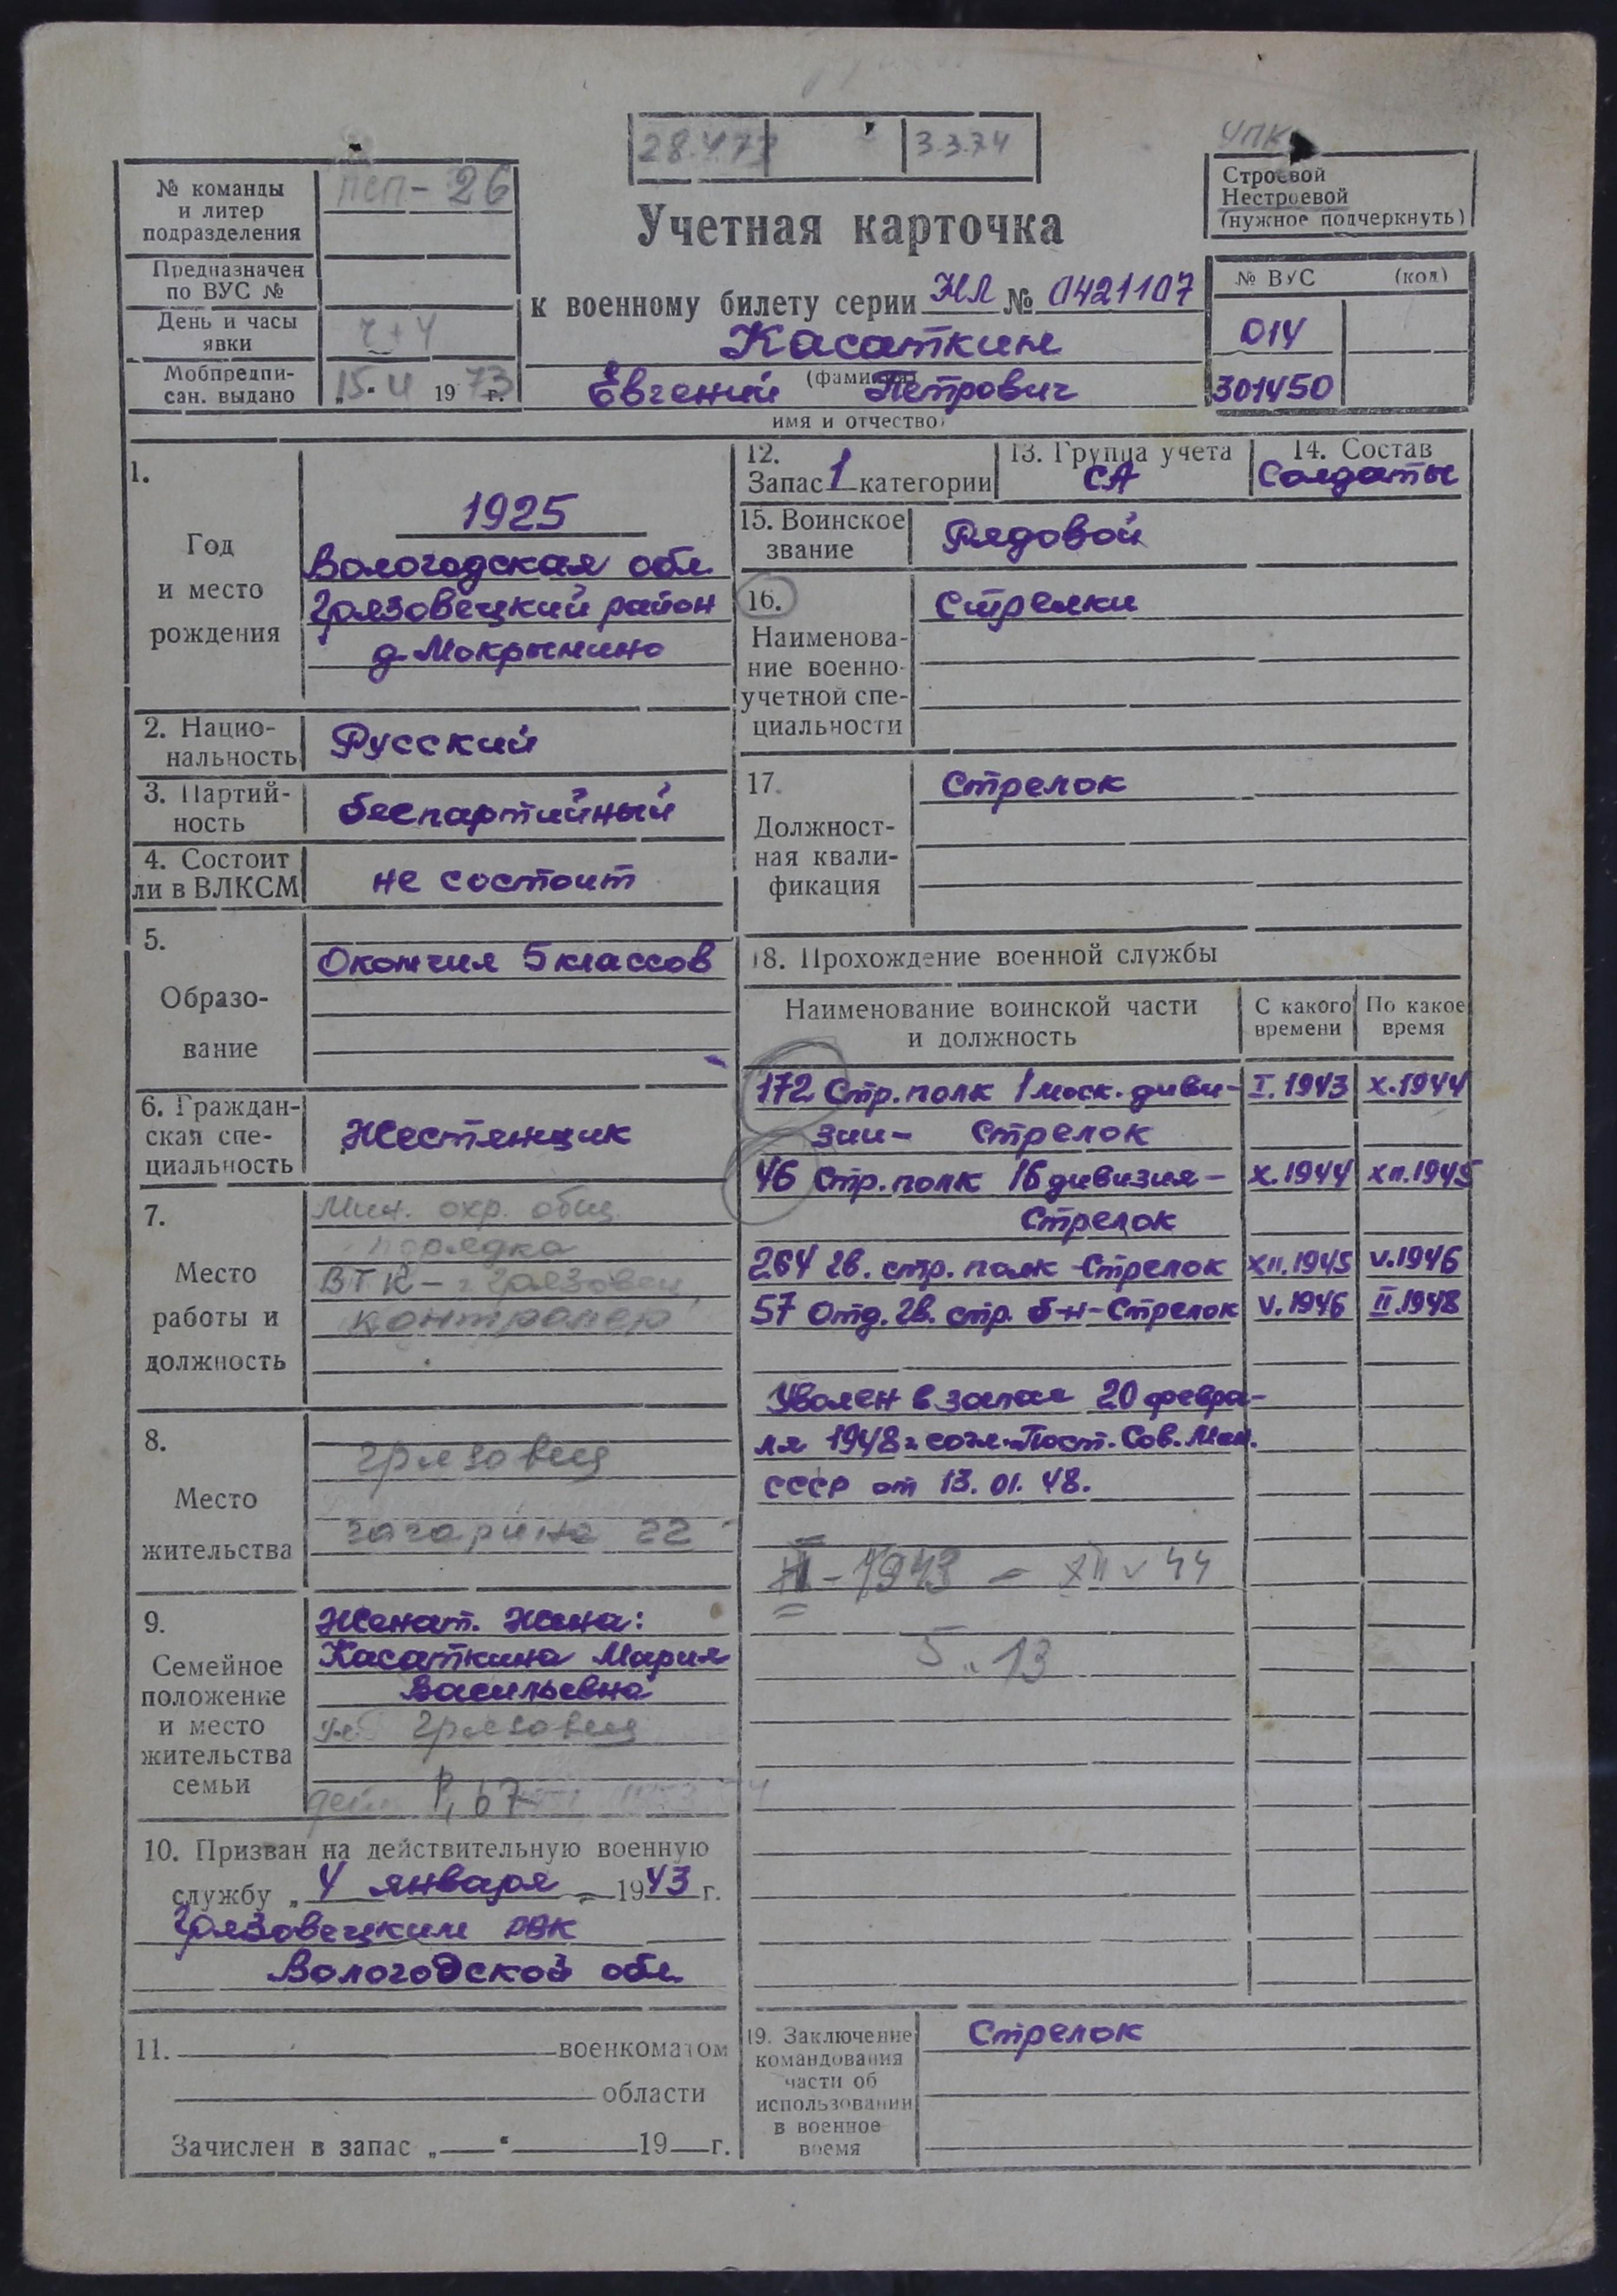 28.4.73 3.3.74
УПК
№ команды
и литер
подразделения
ПСП-26
Предназначен
по ВУС №
День и часы
явки
Ч+4
Мобпредпи-
сан. выдано
„15. 4 1973 г.
Учетная карточка
к военному билету серии НЛ № 0421107
Касаткин
(фамилия)
Евгений Петрович
имя и отчество)
Строевой
Нестроевой
(нужное подчеркнуть)
№ ВУС (код)
014
301450
1.
Год
и место
рождения
1925
Вологодская обл.
Грязовецкий район
д. Мокрынино
2. Нацио-
нальность
Русский
3. Партий-
ность
беспартийный
4. Состоит
ли в ВЛКСМ
не состоит
5.
Образо-
вание
Окончил 5 классов
6. Граждан-
ская спе-
циальность
Жестянщик
7.
Место
работы и
должность
Мин. охр. общ.
порядка
ВТК - г. Грязовец
контролер
8.
Место
жительства
Грязовец
Гагарина 22
9.
Семейное
положение
и место
жительства
семьи
Женат. Жена:
Касаткина Мария
Васильевна
Грязовец
10. Призван на действительную военную
службу „4 января 1943 г.
Грязовецким РВК
Вологодской обл.
11. военкоматом
области
Зачислен в запас „ “ 19 г.
12.
Запас 1 категории
13. Группа учета
СА
14. Состав
Солдаты
15. Воинское
звание
Рядовой
16.
Наименова-
ние военно-
учетной спе-
циальности
Стрелки
17.
Должност-
ная квали-
фикация
Стрелок
18. Прохождение военной службы
Наименование воинской части
и должность
С какого
времени
По какое
время
172 Стр. полк 1 моск. диви- I.1943 X.1944
зии - Стрелок
46 Стр. полк 16 дивизия - X.1944 XII.1945
Стрелок
264 гв. стр. полк - Стрелок XII.1945 V.1946
57 Отд. гв. стр. б-н - Стрелок V.1946 II.1948
Уволен в запас 20 февра-
ля 1948 г. согл. Пост. Сов. Мин.
СССР от 13.01.48.
II - 1943 - XII 44
5. 13
19. Заключение
командования
части об
использовании
в военное
время
Стрелок